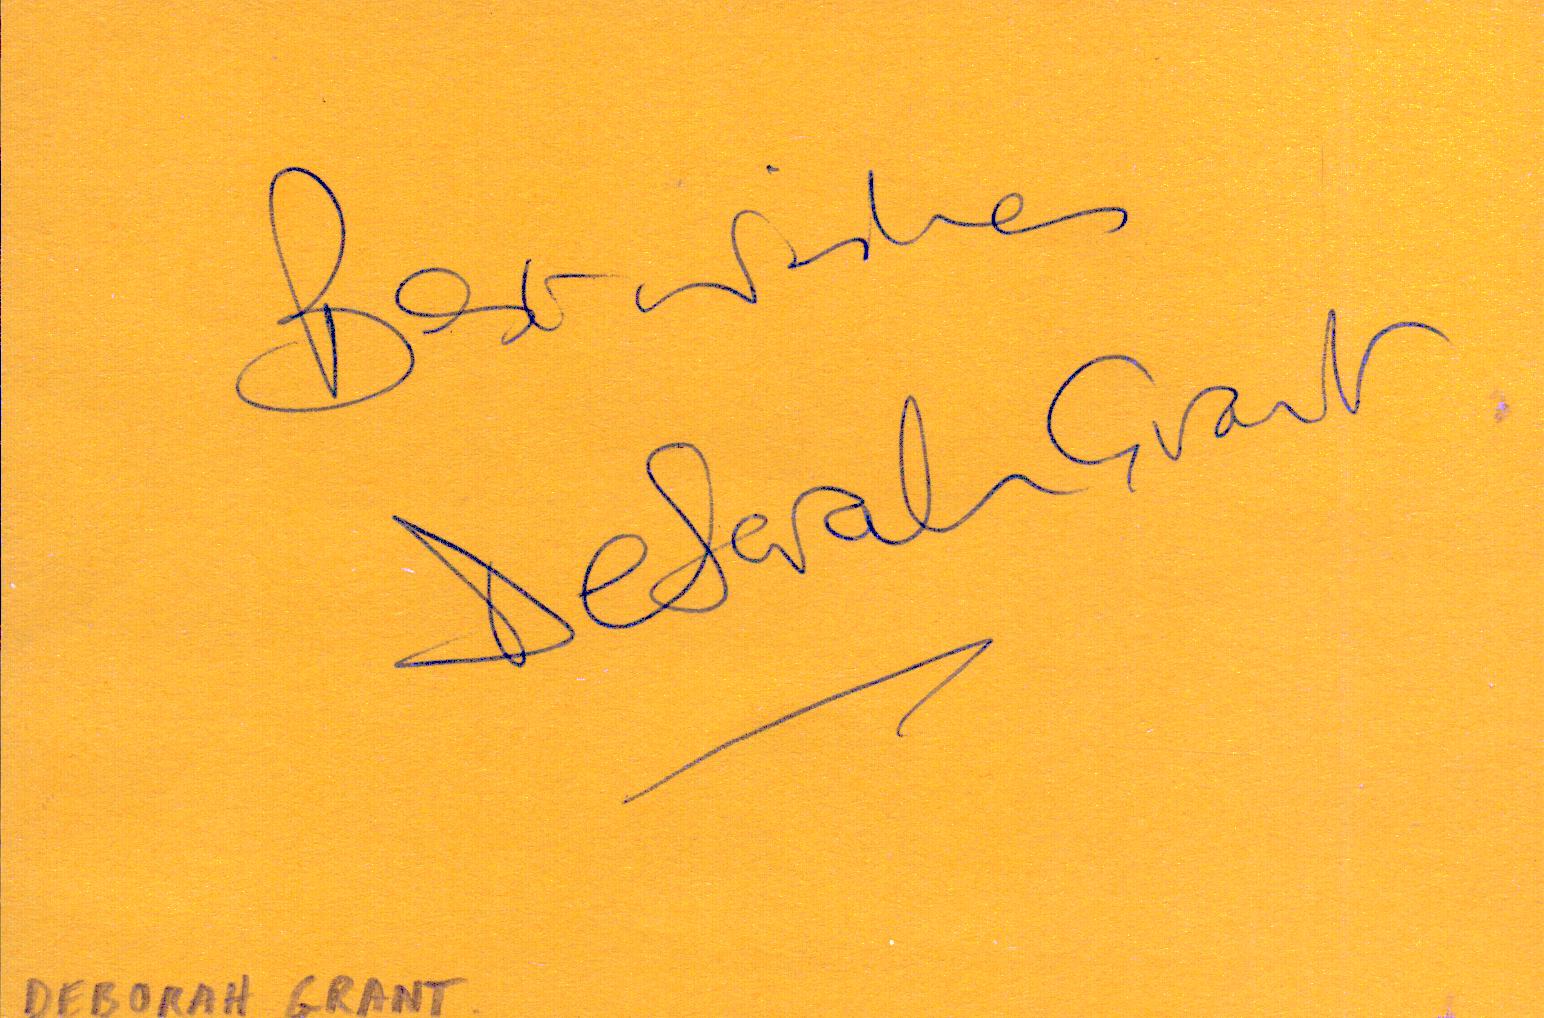 Best wishes
Deborah Grant
DEBORAH GRANT.